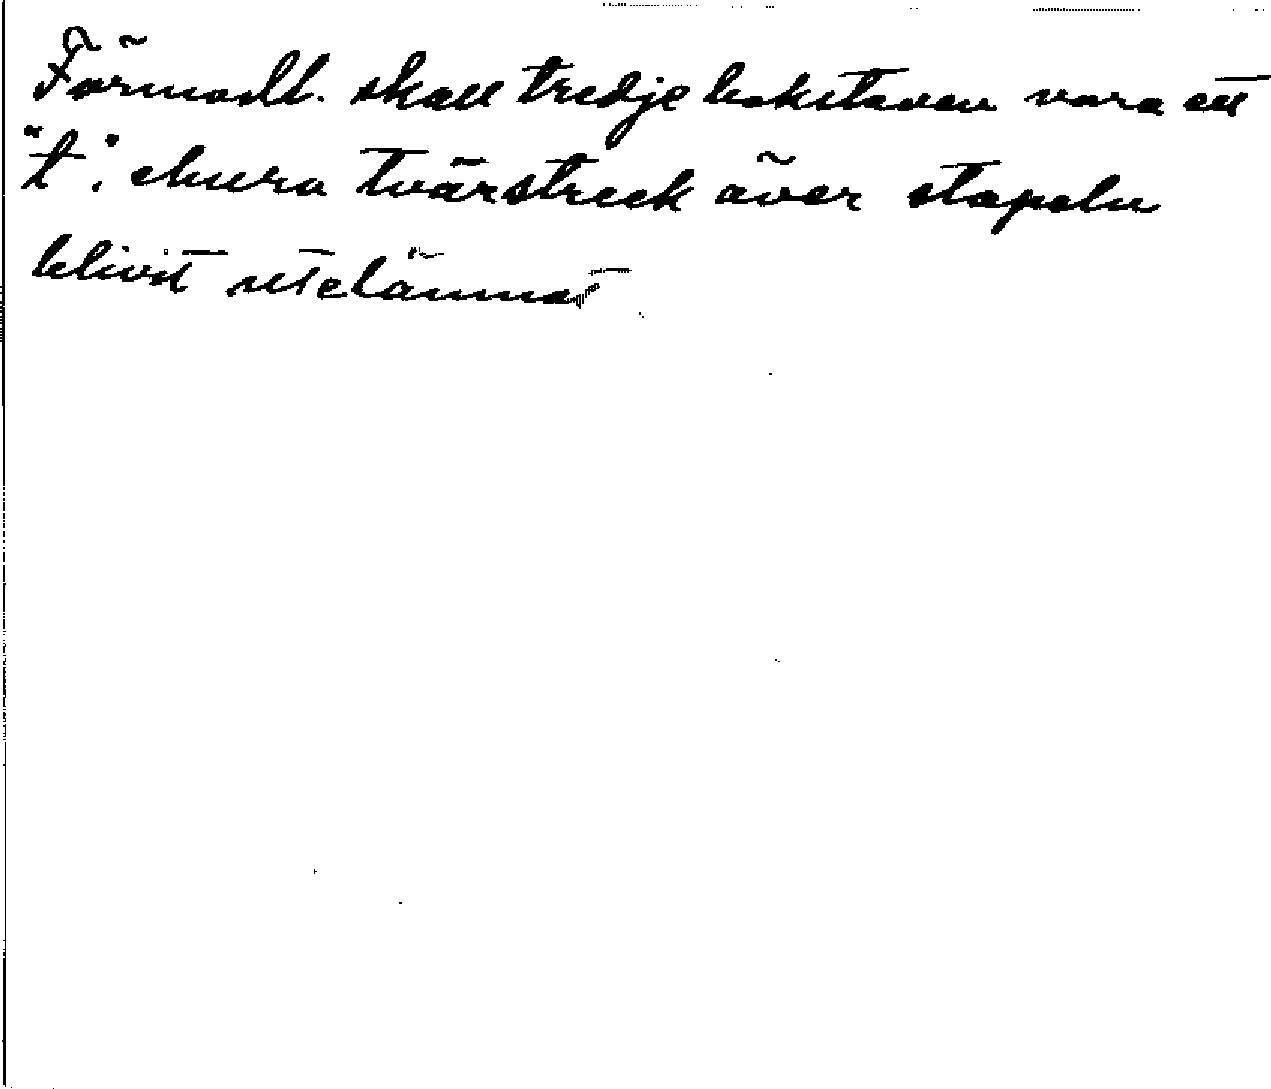 Förmodl. skall tredje bokstaven vara ett
"t", ehuru tvärstreck över stapeln
blivit utelämnat